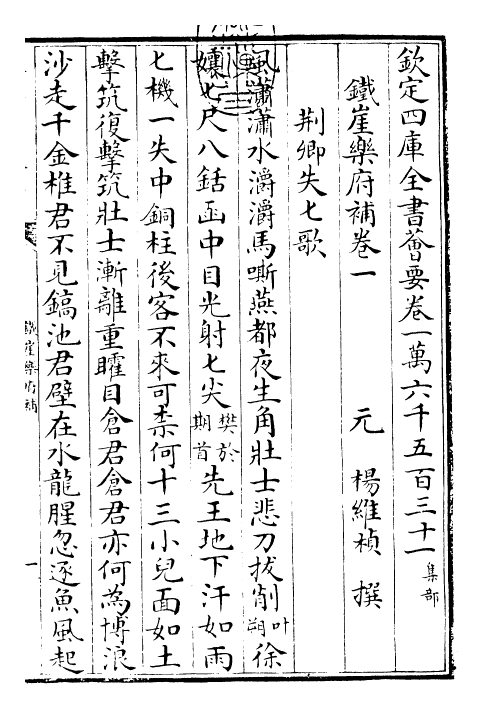 欽定四庫全書薈要卷一萬六千五百三十一集部
鐵崖樂府補卷一
元 楊維楨 撰
荆卿失匕歌
風瀟瀟水潏潏馬嘶燕都夜生角壯士悲刀拔削叶朔徐
孃匕尺八銛函中目光射匕尖樊於期首先王地下汗如雨
匕機一失中銅柱後客不來可柰何十三小兒面如土
擊筑復擊筑壯士漸離重矐目倉君倉君亦何為博浪
沙走千金椎君不見鎬池君壁在水龍腥忽逐魚風起
鐵崖樂府補
一